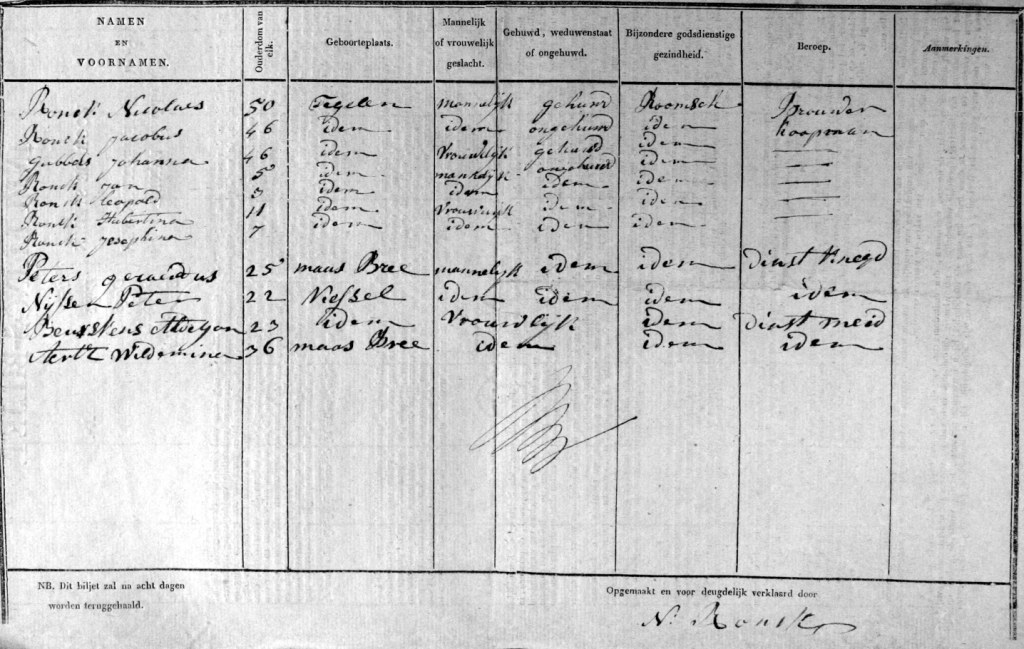 NAMEN EN VOORNAMEN. Ouderdom van elk. Geboorteplaats. Mannelijk of vrouwelijk geslacht. Gehuwd, weduwenstaat of ongehuwd. Bijzondere godsdienstige gezindheid. Beroep. Aanmerkingen.
Ronck Nicolaes 50 Tegelen mannelijk gehuwd Roomsch Brouwer
Ronck Jacobus 46 idem idem ongehuwd idem koopman
Gubbels Johanna 46 idem vrouwelijk gehuwd idem
Ronck Jan 5 idem manlijk ongehuwd idem
Ronck Leopold 3 idem idem idem idem
Ronck Hubertina 11 idem vrouwlijk idem idem
Ronck Josephina 7 idem idem idem idem
Peters gerardus 25 maas Bree mannelijk idem idem dinst knegd
Nijssen Peter 22 Nessel idem idem idem idem
Beurskens Aldegon 23 idem vrouwlijk idem dinst meid
Aerts Wildemina 36 maas Bree idem idem idem
NB. Dit biljet zal na acht dagen
worden teruggehaald.
Opgemaakt en voor deugdelijk verklaard door
N. Ronck